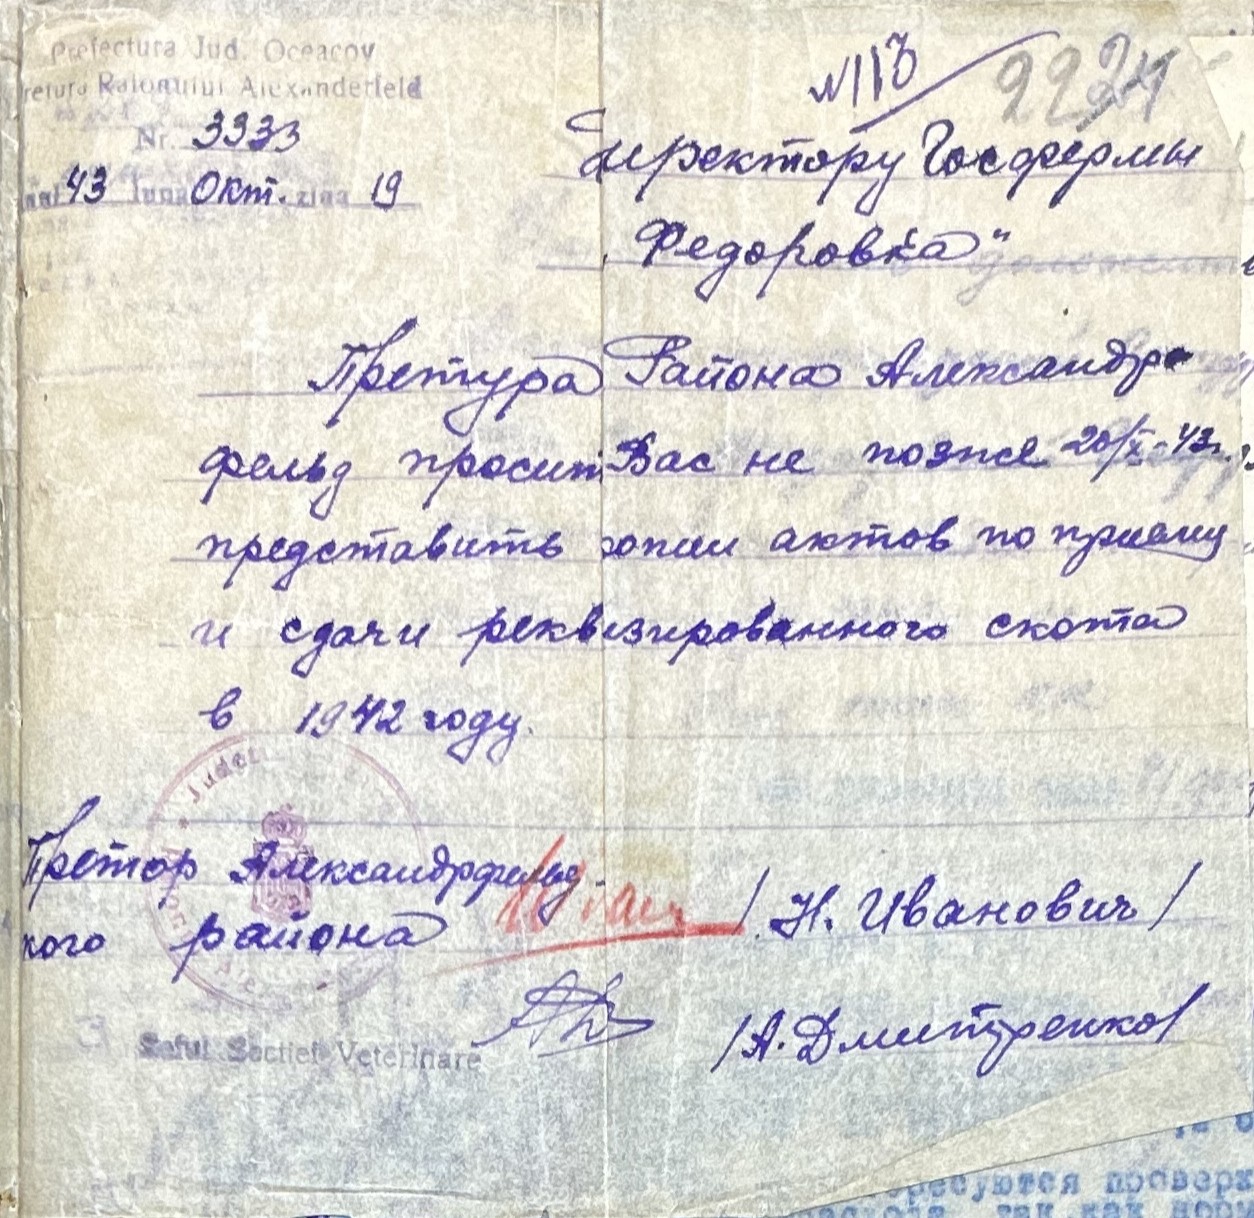 Prefectura Jud. Oceacov
retura Raionului Alexanderfeld
Nr. 3333
anul 43 luna Окт. ziua 19
N113
2224
Директору Госфермы
„Федоровка"
Претура Района Александр
фельд просит Вас не позже 20/X-43г.
представить копии актов по приему
и сдачи реквизированного скота
в 1942 году.
Претор Александрфельд-
кого района /Н. Иванович/
Seful Sectiei Veterinare /А. Дмитренко/
Judet
проверк
так как норм